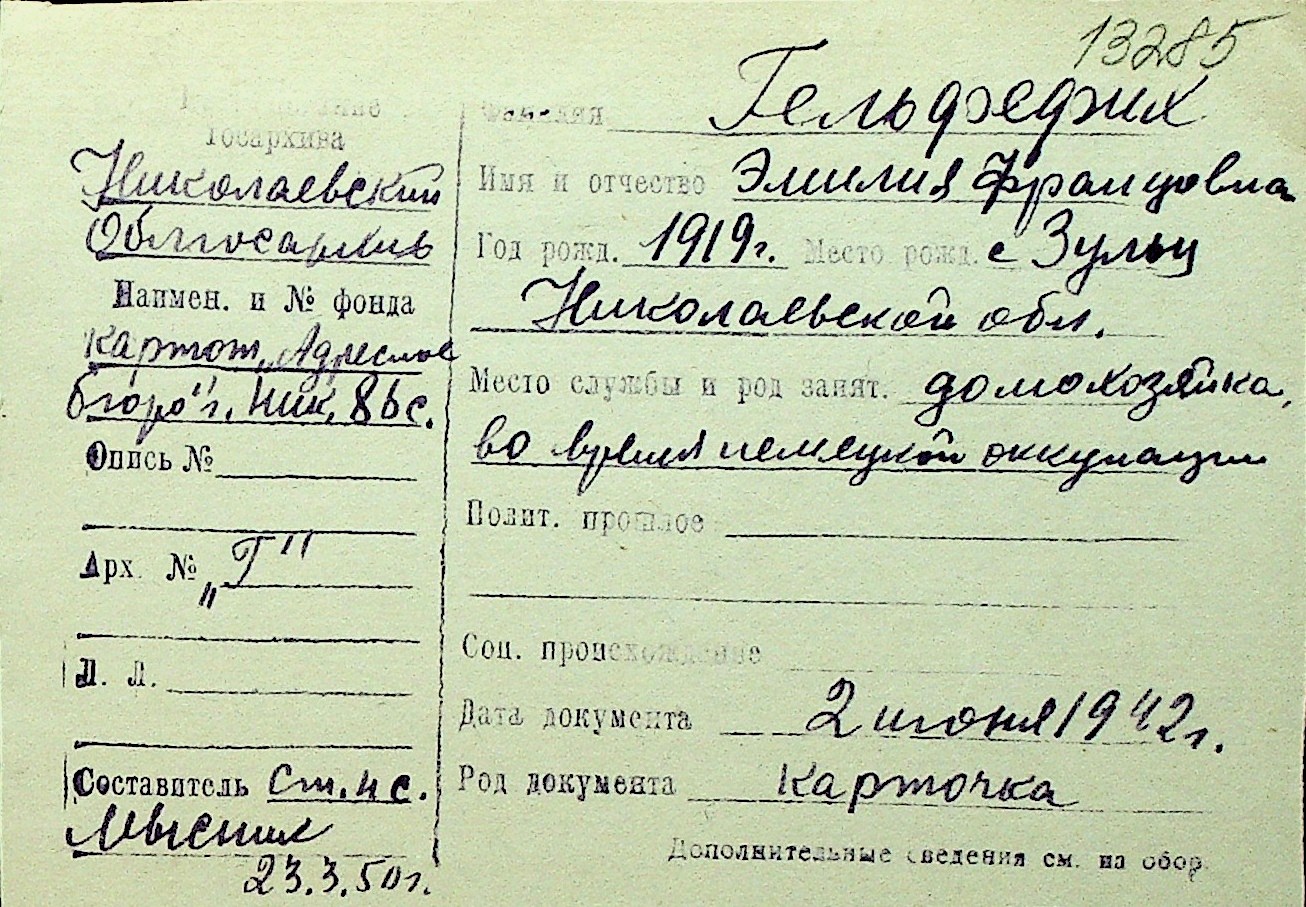 13285
Госархива
Николаевский
Облгосархив
Наимен. и № фонда
картот. „Адресное
бюро" г. Ник. 8 ьс.
Опись №
Арх. № „Г"
Л. Л.
Составитель ст. н с.
23.3.50 г.
Фамилия Гельфефих
Имя и отчество Эмилия Францовна
Год рожд. 1919 г. Место рожд. с Зульц
Николаевской обл.
Место службы и род занят. домохозяйка,
во время немецкой оккупации
Полит. прошлое
Соц. происхождение
Дата документа 2 июня 1942 г.
Род документа карточка
Дополнительные сведения см. на обор.